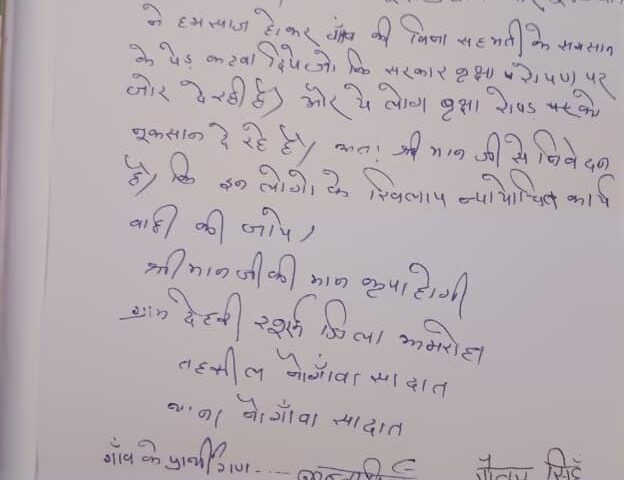 ने हमसाज होकर गाँव की बिना सहमती के समसान
के पेड़ कटवा दिये जो कि सरकार वृक्षा रोपण पर
जोर दे रही है। और ये लोग वृक्षा रोपड़ को
नुकसान दे रहे है। अतः श्री मान जी से निवेदन
है, कि इन लोगो के खिलाप न्यायोचित कार्य
वाही की जाये।
श्री मान जी की मान कृपा होगी
ग्राम देहरी जिला अमरोहा
तहसील नौगाँवा सादात
थाना नौगाँवा सादात
गाँव के प्रार्थीगण ----- गौतम सिहँ